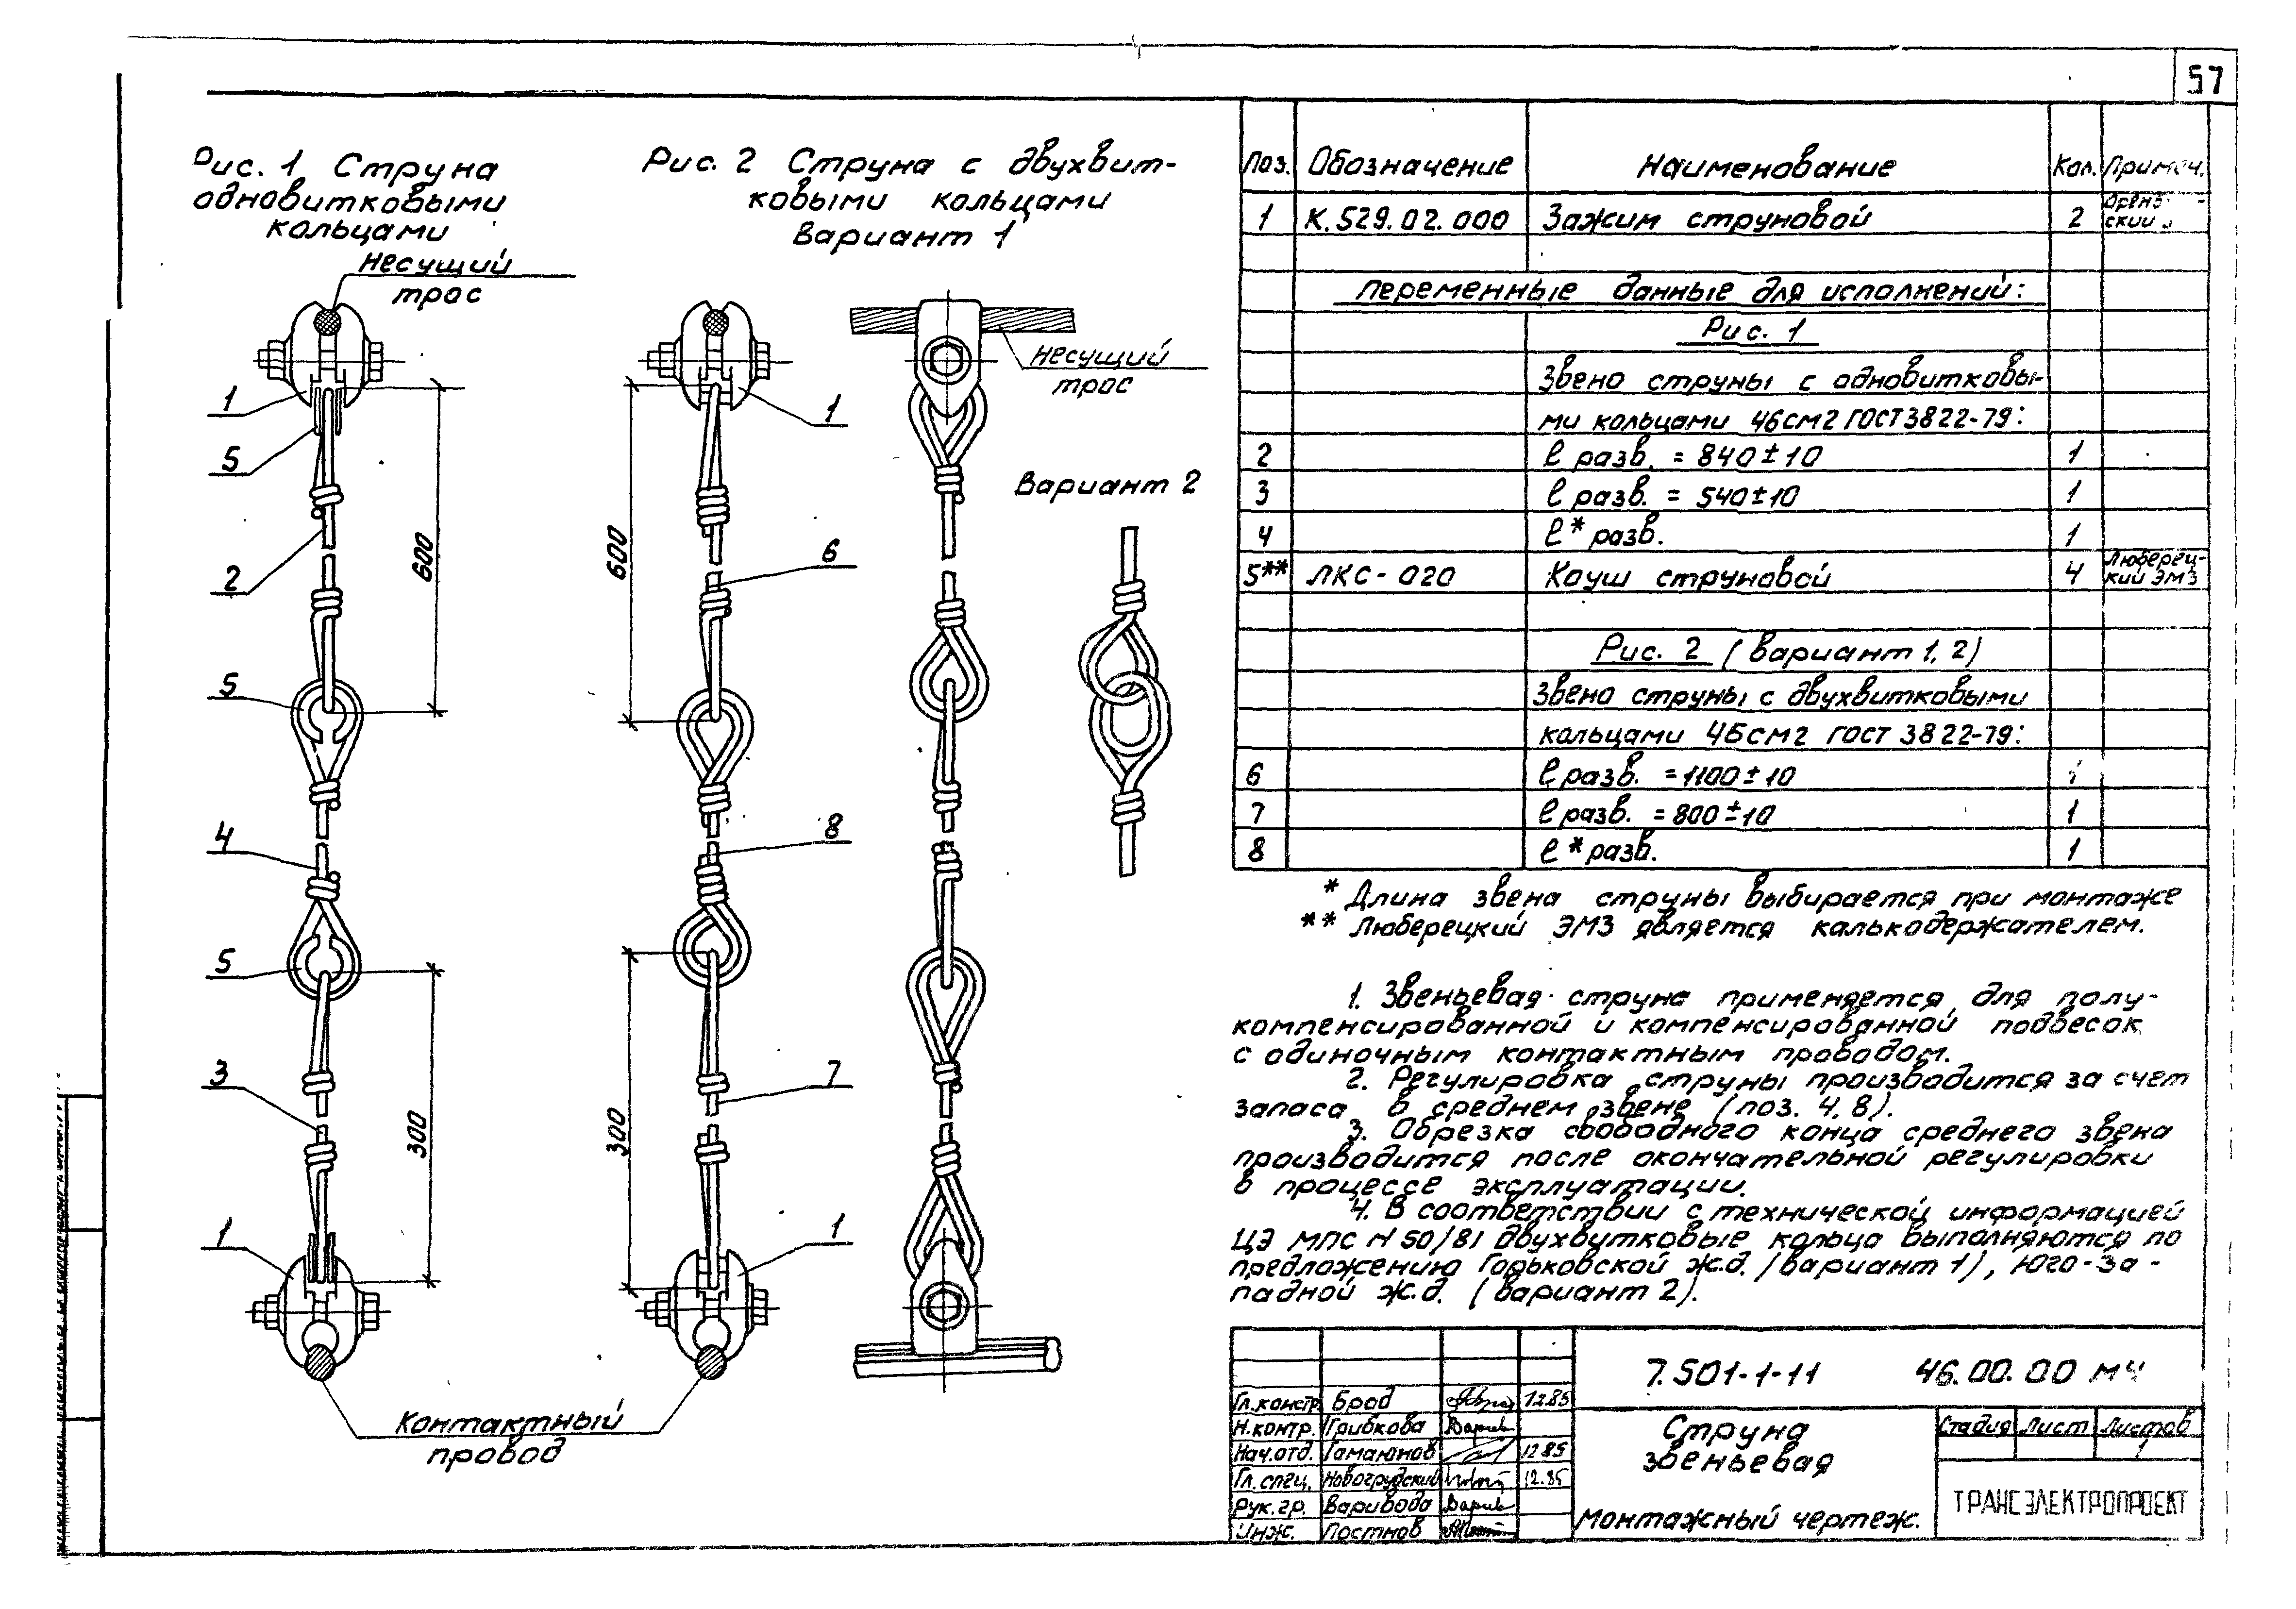 57
Рис. 1 Струна
одновитковыми
кольцами
Несущий
трос
Рис. 2 Струна с двухвит-
ковыми кольцами
Вариант 1
Несущий
трос
Вариант 2
1
5
2
600
5
4
5
3
300
1
1
6
600
8
7
300
1
Контактный
провод
Поз. Обозначение Наименование Кол. Примеч.
1 К.529.02.000 Зажим струновой 2
Переменные данные для исполнений:
Рис. 1
Звено струны с одновитковы-
ми кольцами 4бсм2 ГОСТ 3822-79:
2 l разв. = 840±10 1
3 l разв. = 540±10 1
4 l* разв. 1
5** ЛКС-020 Коуш струновой 4 Люберец-
кий ЭМЗ
Рис. 2 (вариант 1, 2)
Звено струны с двухвитковыми
кольцами 4бсм2 ГОСТ 3822-79:
6 l разв. = 1100±10
7 l разв. = 800±10 1
8 l* разв. 1
* Длина звена струны выбирается при монтаже
** Люберецкий ЭМЗ является калькодержателем.
1. Звеньевая струна применяется для полу-
компенсированной и компенсированной подвесок
с одиночным контактным проводом.
2. Регулировка струны производится за счет
запаса в среднем звене (поз. 4, 8).
3. Обрезка свободного конца среднего звена
производится после окончательной регулировки
в процессе эксплуатации.
4. В соответствии с технической информацией
ЦЭ МПС N 50/81 двухвутковые кольца выполняются по
предложению Горьковской ж.д. (вариант 1), Юго-за-
падной ж.д. (вариант 2).
7.501-1-11 46.00.00 МЧ
Гл.констр. Брод 12.85
Н.контр. Грибкова
Нач.отд. Гамаюнов 12.85
Гл.спец. Новогрудский 12.85
Рук.гр. Варивода
Инж. Постнов
Струна
звеньевая
Монтажный чертеж.
Стадия Лист Листов
1
ТРАНСЭЛЕКТРОПРОЕКТ